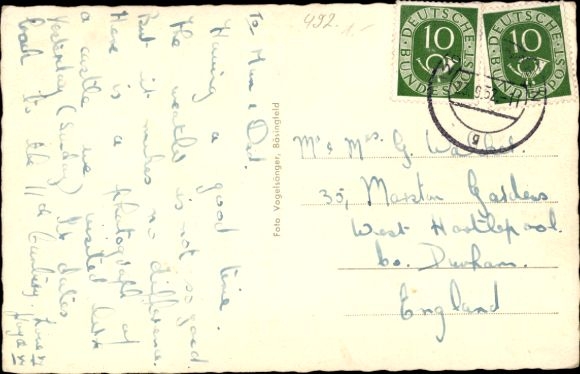 To Mum & Dad.
Having a good time.
The weather is not so good
But it makes no difference.
Here is a photograph of
a castle we visited last
Yesterday (Sunday) It dates
back to the 11th Century. Love
492. 1.-
Foto Vogelsänger, Bösingfeld
DEUTSCHE BUNDESPOST
10
DEUTSCHE BUNDESPOST
10
Mr & Mrs. G.
35, Marston Gardens
West Hartlepool.
Co. Durham.
England